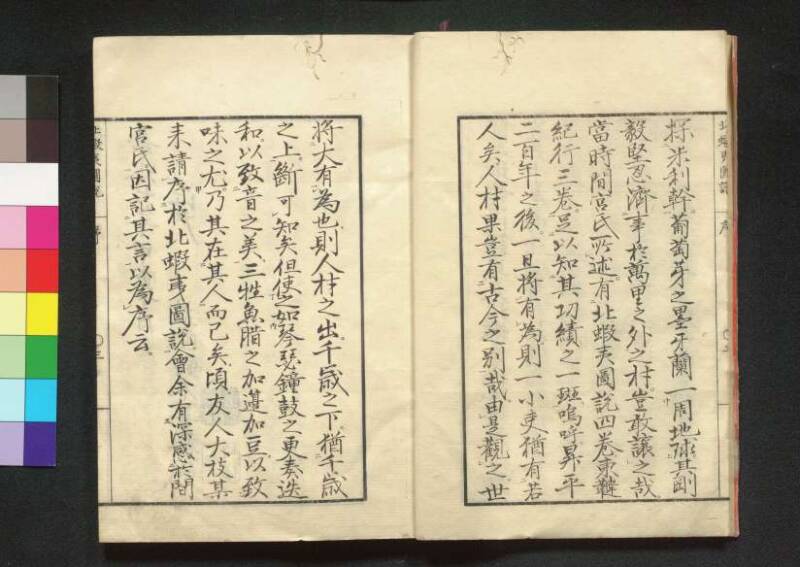 探米利幹葡萄牙之墨牙蘭一周地球其剛
毅堅忍濟事於萬里之外之材豈敢讓之哉
當時間宮氏所述有北蝦夷圖說四卷東韃
紀行三卷足以知其功績之一斑嗚呼昇平
二百年之後一旦將有為則一小吏猶有若
人矣人材果豈有古今之別哉由是觀之世
北蝦夷圖說 序 〇三
將大有為也則人材之出千歲之下猶千歲
之上斷可知矣但使之如琴瑟鐘鼓之更奏迭
和以致音之美三牲魚腊之加籩加豆以致
味之尤乃其在其人而已矣頃友人大枝某
来請序於北蝦夷圖說會余有深感於間
宮氏因記其言以為序云
北蝦夷圖說 序 〇三